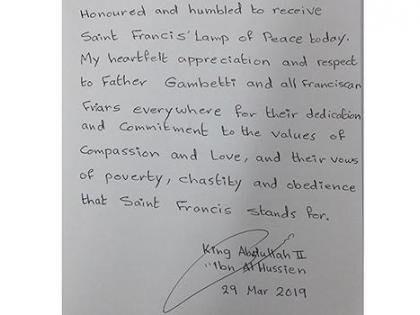 Honoured and humbled to receive
Saint Francis' Lamp of Peace today.
My heartfelt appreciation and respect
to Father Gambetti and all Franciscan
Friars everywhere for their dedication
and commitment to the values of
Compassion and Love, and their vows
of poverty, chastity and obedience
that Saint Francis stands for.
King Abdullah II
"Ibn Al Hussien
29 Mar 2019